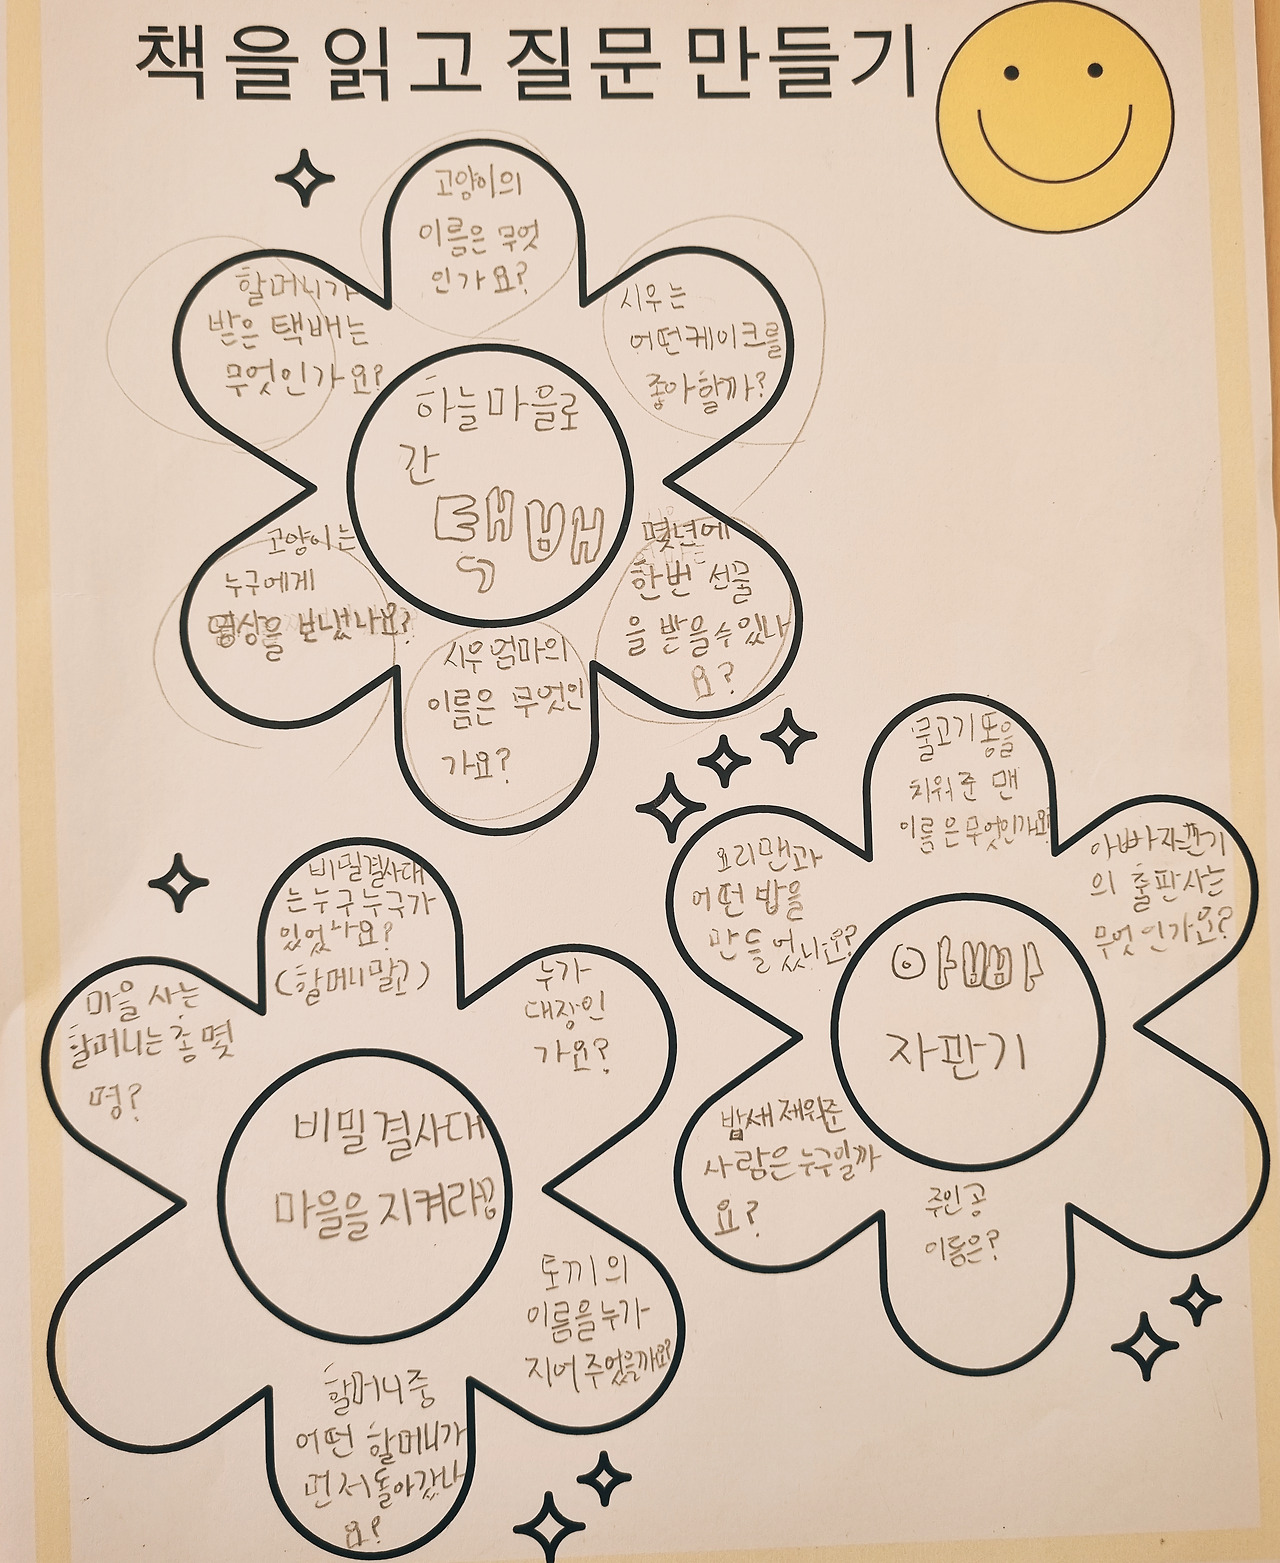 책을 읽고 질문 만들기
고양이의
이름은 무엇
인가요?
할머니가
받은 택배는
무엇인가요?
시우는
어떤케이크를
좋아할까?
하늘마을로
간
택배
고양이는
누구에게
영상을 보냈나요?
몇년에
한번 선물
을 받을수있나
요?
시우엄마의
이름은 무엇인
가요?
비밀결사대
는누구누구가
있었나요?
(할머니말고)
마을 사는
할머니는총몇
명?
누가
대장인
가요?
비밀결사대
마을을 지켜라!
토끼의
이름을누가
지어주었을까요?
할머니중
어떤 할머니가
먼저돌아갔나
요?
물고기똥을
치워준 맨
이름은무엇인가요?
요리맨과
어떤 밥을
만들었나요?
아빠자판기
의 출판사는
무엇인가요?
아빠
자판기
밤새재워준
사람은누구일까
요?
주인공
이름은?